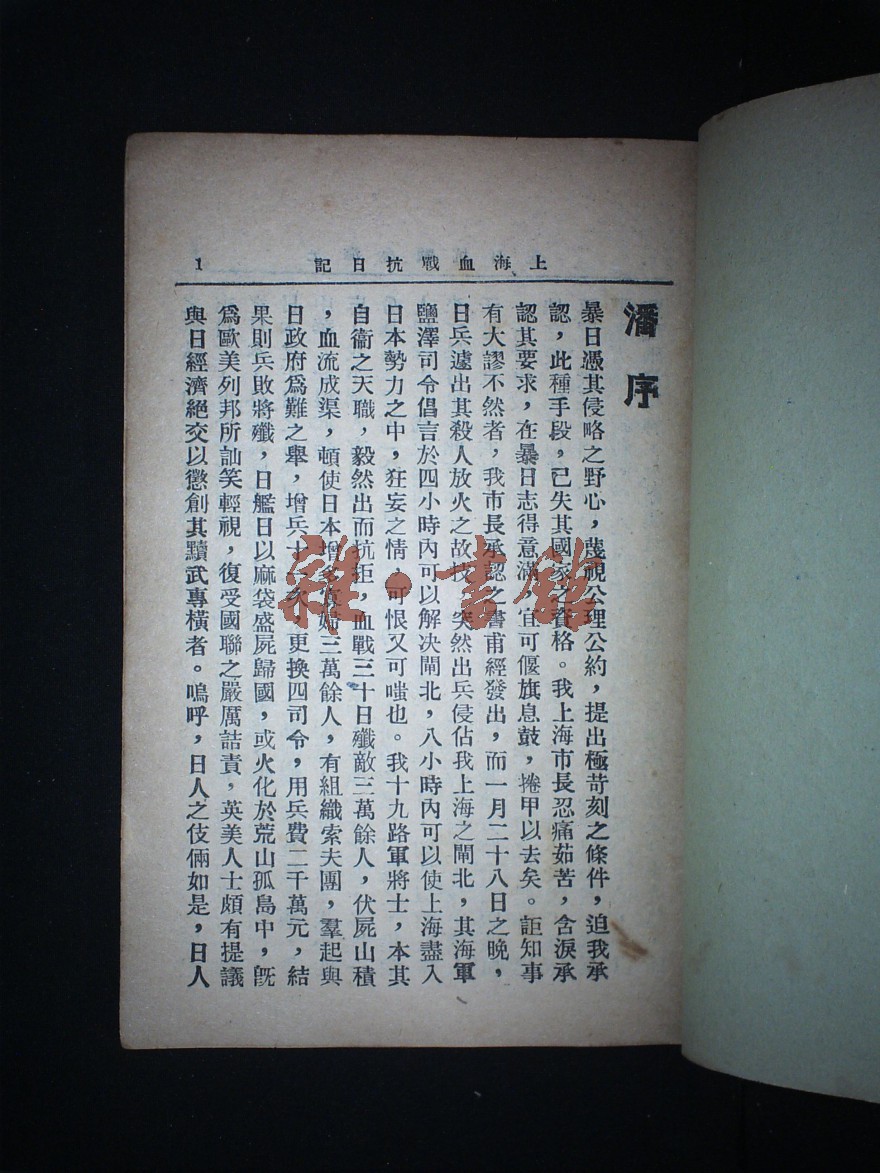 上海血戰抗日記
1
潘序
暴日憑其侵略之野心，蔑視公理公約，提出極苛刻之條件，迫我承
認，此種手段，已失其國家之資格。我上海市長忍痛茹苦，含淚承
認其要求，在暴日志得意滿，宜可偃旗息鼓，捲甲以去矣。詎知事
有大謬不然者，我市長承認之書甫經發出，而一月二十八日之晚，
日兵遽出其殺人放火之故技，突然出兵侵佔我上海之閘北，其海軍
鹽澤司令倡言於四小時內可以解决閘北，八小時內可以使上海盡入
日本勢力之中，狂妄之情，可恨又可嗤也。我十九路軍將士，本其
自衞之天職，毅然出而抗拒，血戰三十日殲敵三萬餘人，伏屍山積
，血流成渠，頓使日本增多寡婦三萬餘人，有組織索夫團，羣起與
日政府爲難之舉，增兵十一次，更換四司令，用兵費二千萬元，結
果則兵敗將殲，日艦日以麻袋盛屍歸國，或火化於荒山孤島中，旣
爲歐美列邦所訕笑輕視，復受國聯之嚴厲詰責，英美人士頗有提議
與日經濟絕交以懲創其黷武專橫者。嗚呼，日人之伎倆如是，日人
雜·書館